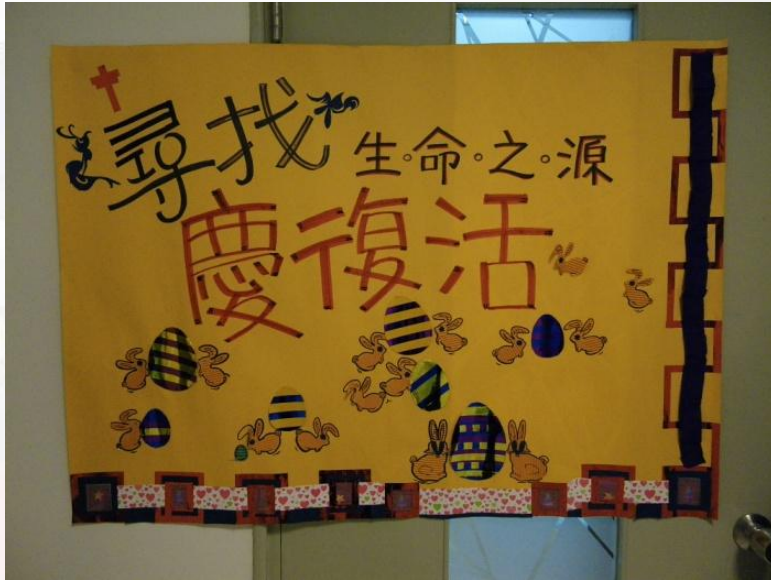 尋找生。命。之。源
慶復活